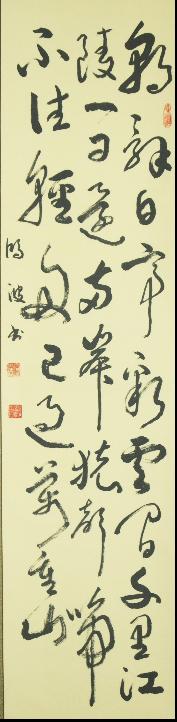 朝辭白帝彩雲間千里江
陵一日還兩岸猿聲啼
不住輕舟已過萬重山
鴻波书